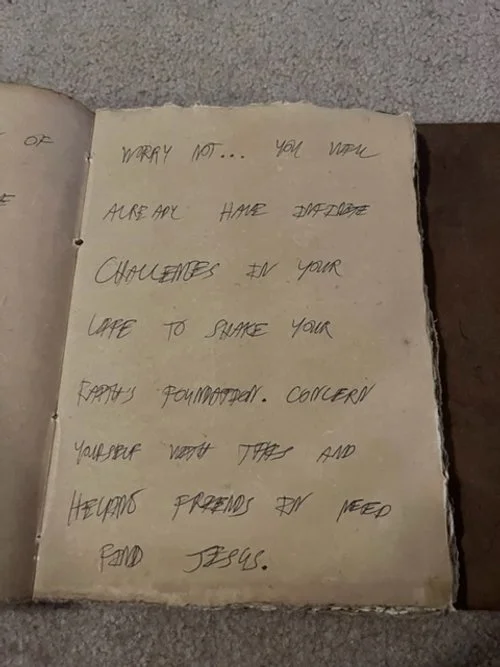 OF
WORRY NOT... YOU WILL
ALREADY HAVE INFINITE
CHALLENGES IN YOUR
LIFE TO SHAKE YOUR
FAITH'S FOUNDATION. CONCERN
YOURSELF WITH THIS AND
HELPING FRIENDS IN NEED
FIND JESUS.